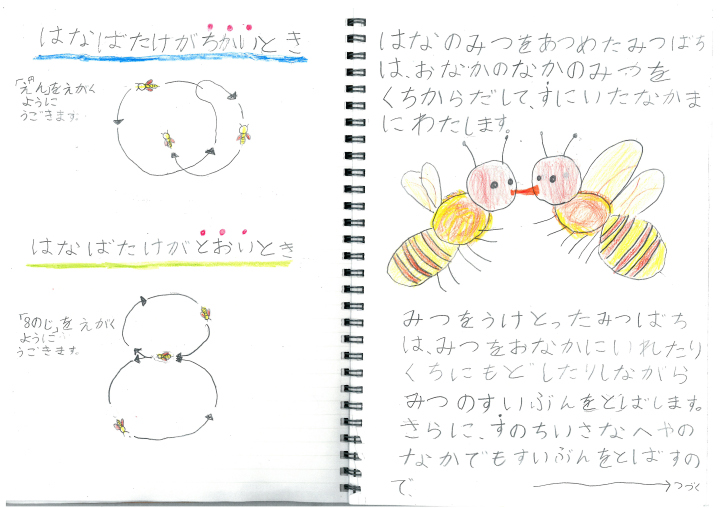 はなばたけがちかいとき
「えん」をえがく
ように
うごきます。
はなばたけがとおいとき
「8のじ」をえがく
ように
うごきます。
はなのみつをあつめたみつばち
は、おなかのなかのみつを
くちからだして、すにいたなかま
にわたします。
みつをうけとったみつばち
は、みつをおなかにいれたり
くちにもどしたりしながら
みつのすいぶんをとばします。
さらに、すのちいさなへやの
なかでもすいぶんをとばすの
で、
つづく